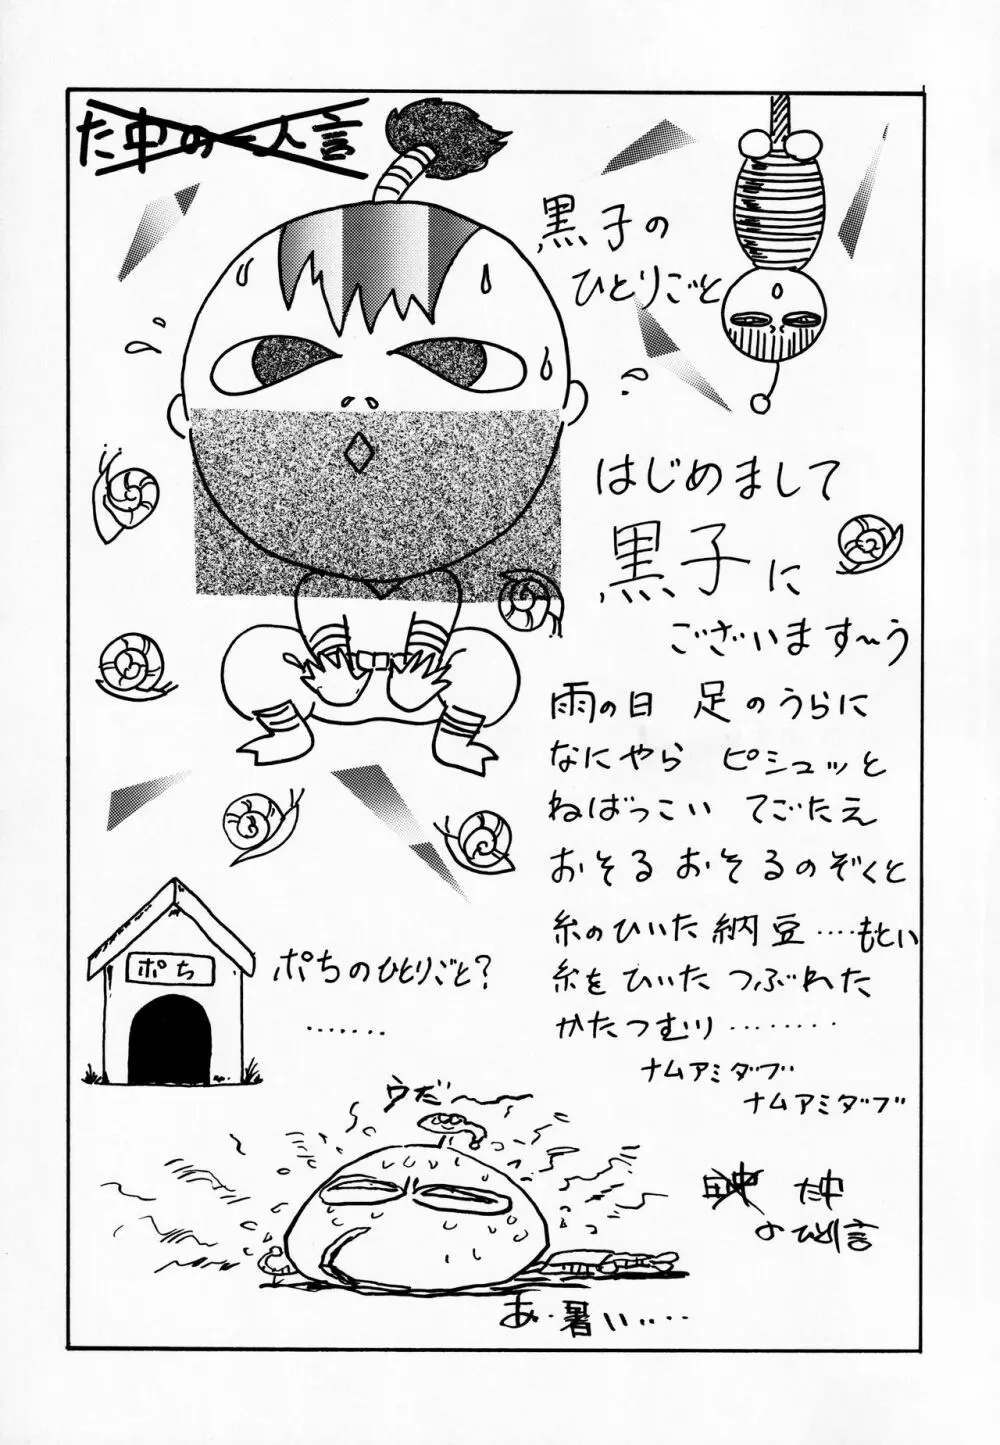 た中の一人言
黒子の
ひとりごと
はじめまして
黒子に
ございます〜う
雨の日 足のうらに
なにやら ピシュッと
ねばっこい てごたえ
おそる おそるのぞくと
糸のひいた 納豆‥‥もとい
糸を ひいた つぶれた
かたつむり‥‥‥‥
ナムアミダブ
ナムアミダブ
ポち
ポちのひとりごと?
‥‥‥‥
ウだ〜
田中 た中
のひとり言
あ‥暑い‥‥